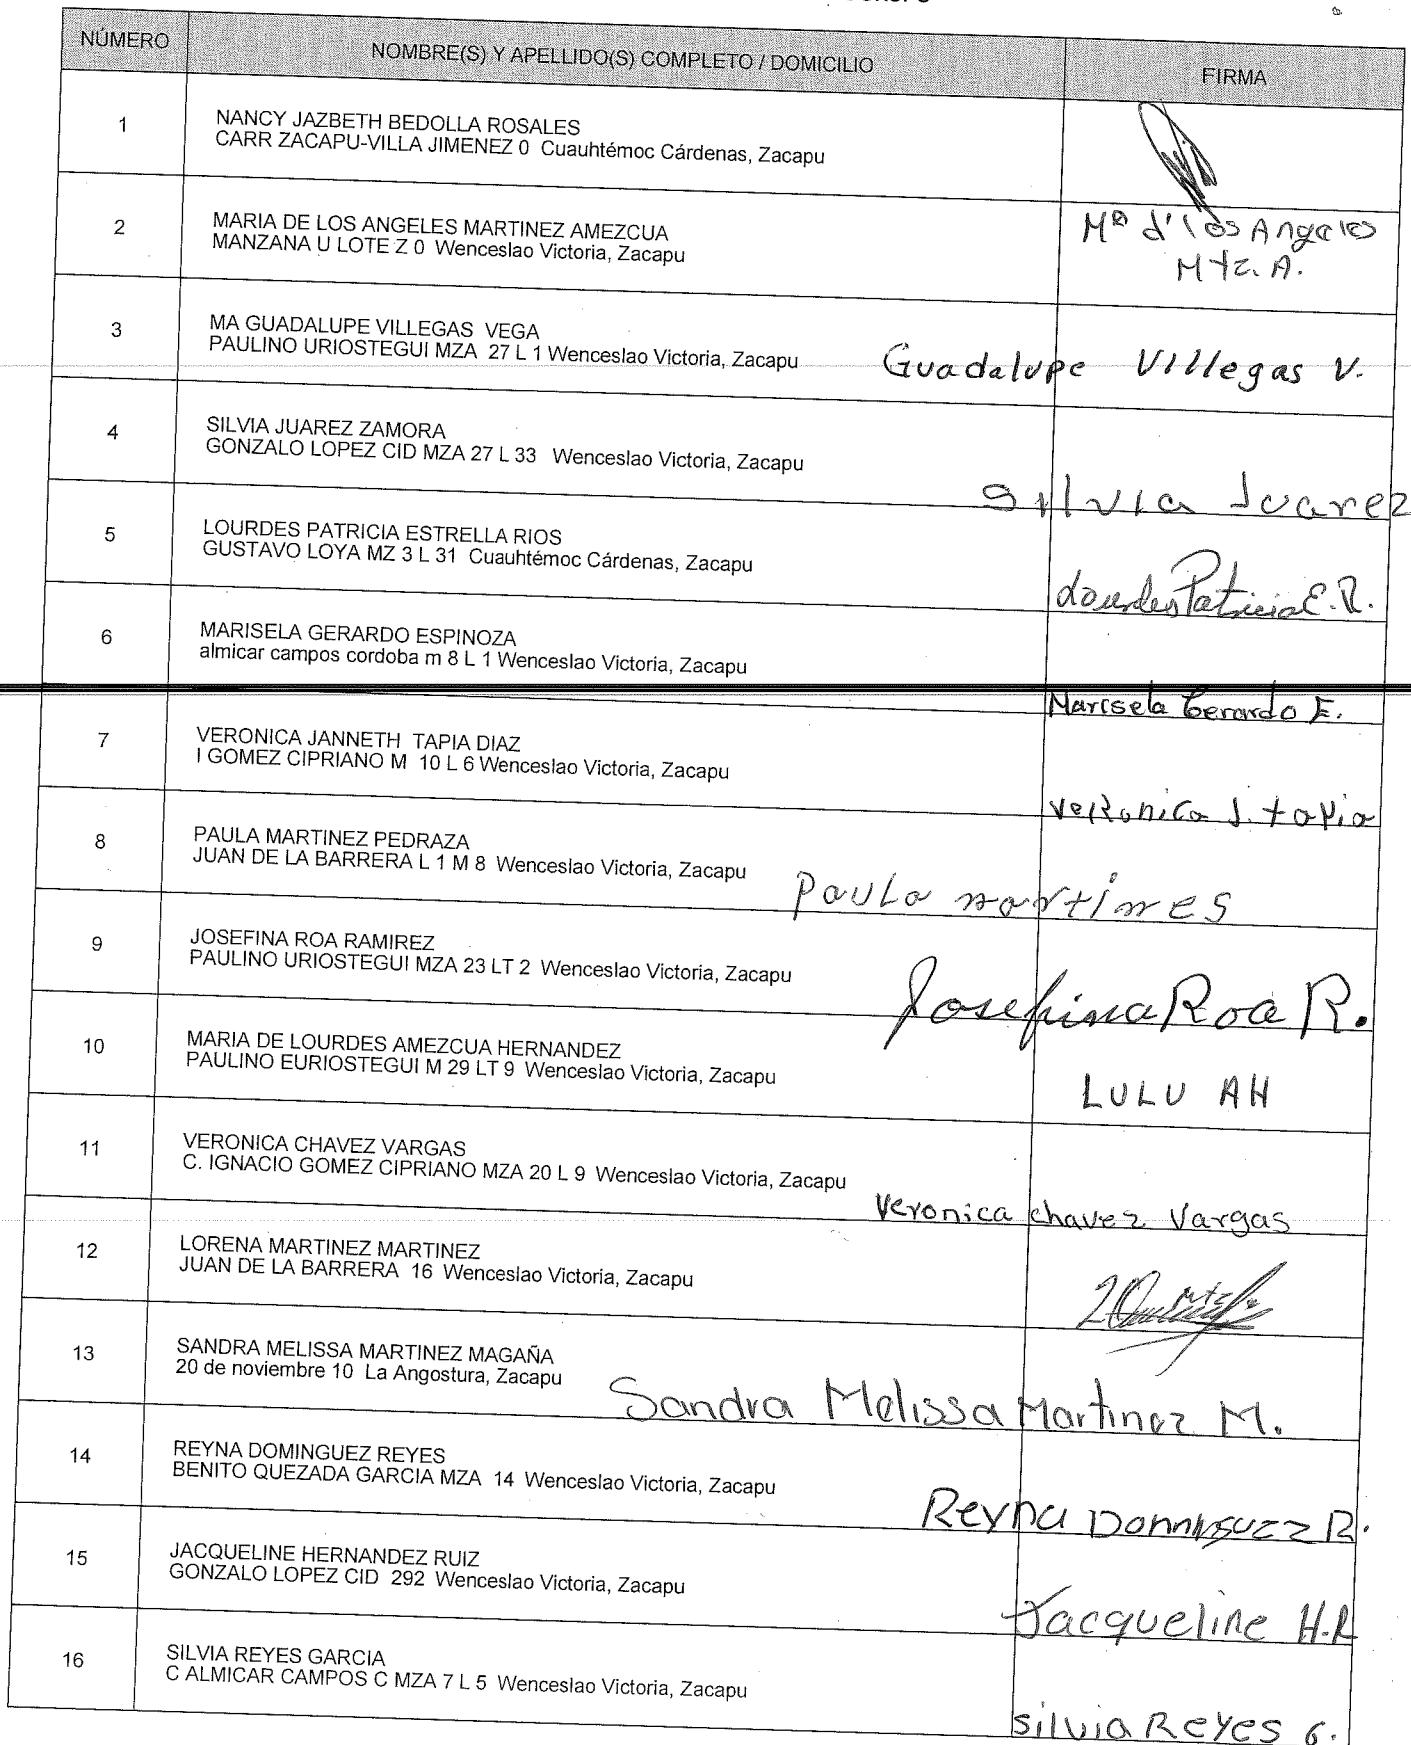 NÚMERO NOMBRE(S) Y APELLIDO(S) COMPLETO / DOMICILIO FIRMA
1 NANCY JAZBETH BEDOLLA ROSALES
CARR ZACAPU-VILLA JIMENEZ 0 Cuauhtémoc Cárdenas, Zacapu
2 MARIA DE LOS ANGELES MARTINEZ AMEZCUA
MANZANA U LOTE Z 0 Wenceslao Victoria, Zacapu
Mª d' los Angeles
Mtz. A.
3 MA GUADALUPE VILLEGAS VEGA
PAULINO URIOSTEGUI MZA 27 L 1 Wenceslao Victoria, Zacapu
Guadalupe Villegas V.
4 SILVIA JUAREZ ZAMORA
GONZALO LOPEZ CID MZA 27 L 33 Wenceslao Victoria, Zacapu
Silvia Juarez
5 LOURDES PATRICIA ESTRELLA RIOS
GUSTAVO LOYA MZ 3 L 31 Cuauhtémoc Cárdenas, Zacapu
Lourdes Patricia E. R.
6 MARISELA GERARDO ESPINOZA
almicar campos cordoba m 8 L 1 Wenceslao Victoria, Zacapu
Marisela Gerardo E.
7 VERONICA JANNETH TAPIA DIAZ
I GOMEZ CIPRIANO M 10 L 6 Wenceslao Victoria, Zacapu
veRonica J. tapia
8 PAULA MARTINEZ PEDRAZA
JUAN DE LA BARRERA L 1 M 8 Wenceslao Victoria, Zacapu
Paula martines
9 JOSEFINA ROA RAMIREZ
PAULINO URIOSTEGUI MZA 23 LT 2 Wenceslao Victoria, Zacapu
Josefina Roa R.
10 MARIA DE LOURDES AMEZCUA HERNANDEZ
PAULINO EURIOSTEGUI M 29 LT 9 Wenceslao Victoria, Zacapu
LULU AH
11 VERONICA CHAVEZ VARGAS
C. IGNACIO GOMEZ CIPRIANO MZA 20 L 9 Wenceslao Victoria, Zacapu
Veronica chavez Vargas
12 LORENA MARTINEZ MARTINEZ
JUAN DE LA BARRERA 16 Wenceslao Victoria, Zacapu
13 SANDRA MELISSA MARTINEZ MAGAÑA
20 de noviembre 10 La Angostura, Zacapu
Sandra Melissa Martinez M.
14 REYNA DOMINGUEZ REYES
BENITO QUEZADA GARCIA MZA 14 Wenceslao Victoria, Zacapu
Reyna Dominguez R.
15 JACQUELINE HERNANDEZ RUIZ
GONZALO LOPEZ CID 292 Wenceslao Victoria, Zacapu
Jacqueline H.R
16 SILVIA REYES GARCIA
C ALMICAR CAMPOS C MZA 7 L 5 Wenceslao Victoria, Zacapu
silvia Reyes G.